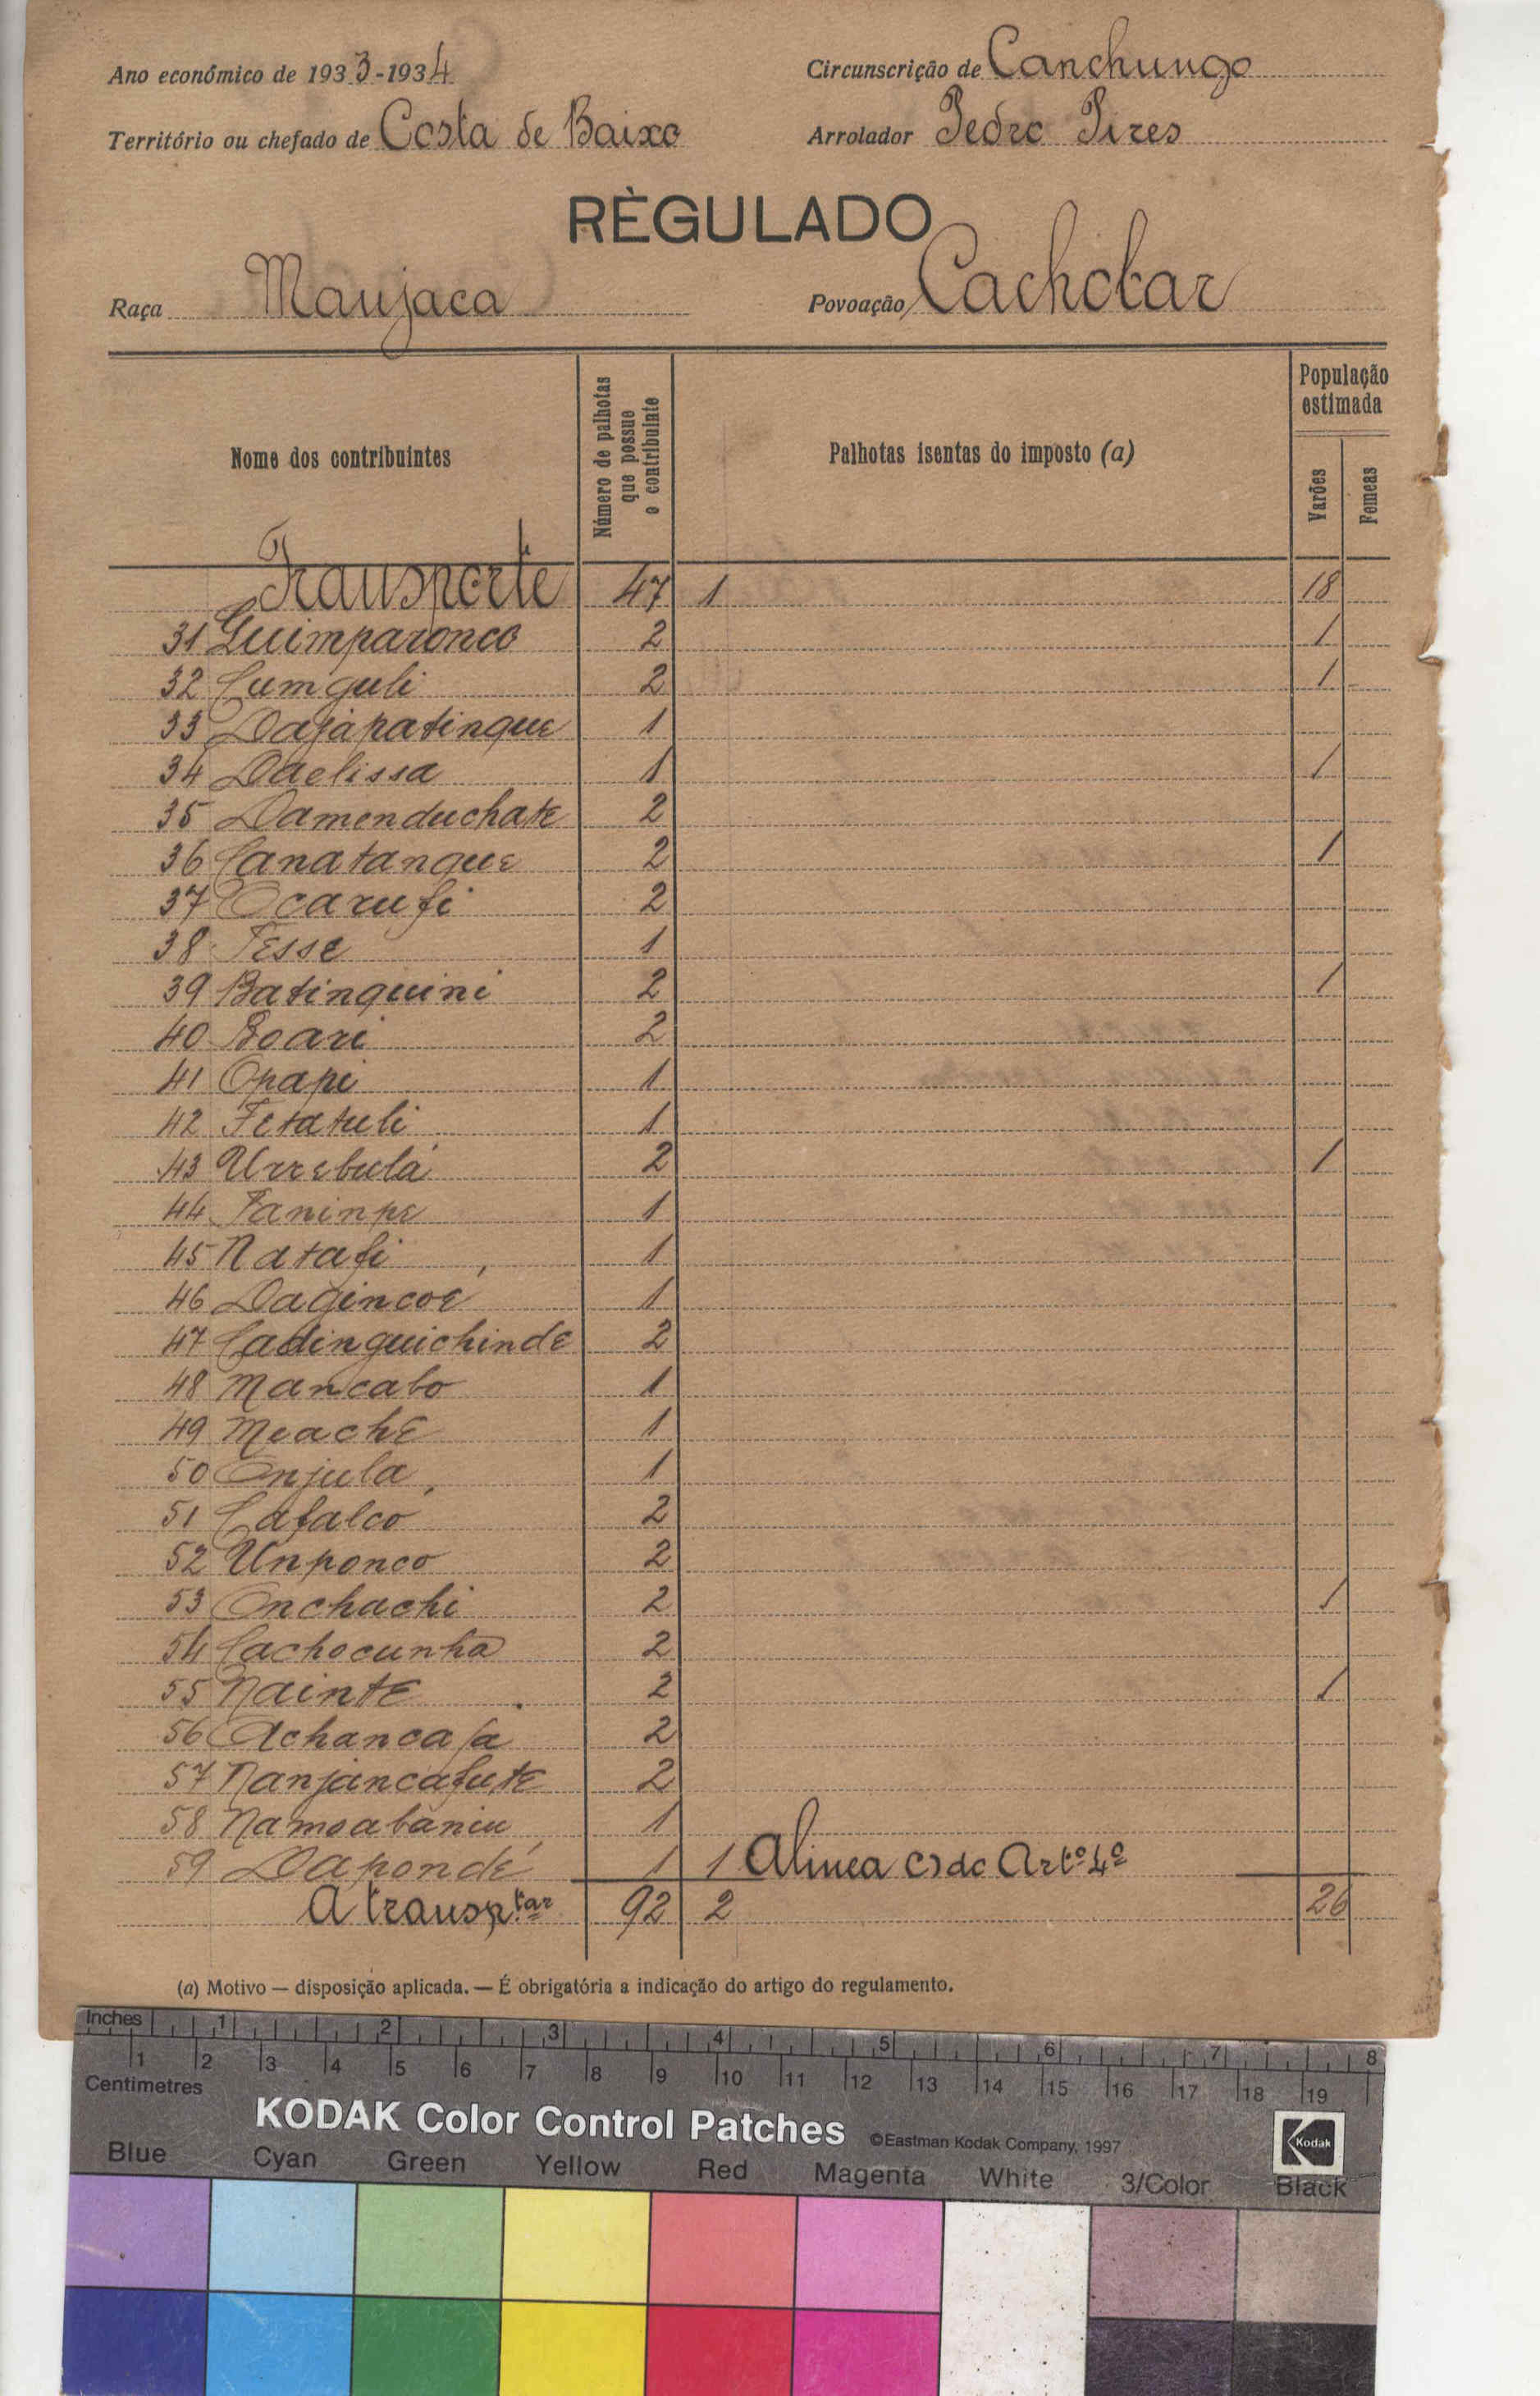 Ano económico de 1933-1934 Circunscrição de Canchungo
Território ou chefado de Costa de Baixo Arrolador Pedro Pires
RÈGULADO
Raça Manjaca Povoação Cachobar
Nome dos contribuintes
Número de palhotas que possue o contribuinte
Palhotas isentas do imposto (a)
População estimada
Varões
Femeas
Transporte 47 1 18
31 Guimparonco 2 1
32 Cumguli 2 1
33 Dajapatinque 1
34 Daelissa 1 1
35 Damenduchate 2
36 Canatanque 2 1
37 Ocarufi 2
38 Tesse 1
39 Batinquini 2 1
40 Boari 2
41 Opapi 1
42 Fetatuli 1
43 Urrebula 2 1
44 Faninpe 1
45 Natafi 1
46 Dagincoe 1
47 Cadinguichinde 2
48 Mancabo 1
49 Meache 1
50 Onjula 1
51 Cafalco 2
52 Unponco 2
53 Onchachi 2 1
54 Cachocunha 2
55 Nainte 2 1
56 Achancaja 2
57 Nanjancafute 2
58 Namoabaniu 1
59 Dapondé 1 1 Alinea c) do Artº 4º
A transp.tar 92 2 26
(a) Motivo — disposição aplicada. — É obrigatória a indicação do artigo do regulamento.
Inches 1 2 3 4 5 6 7 8
1 2 3 4 5 6 7 8 9 10 11 12 13 14 15 16 17 18 19
Centimetres
KODAK Color Control Patches ©Eastman Kodak Company, 1997 Kodak
Blue Cyan Green Yellow Red Magenta White 3/Color Black